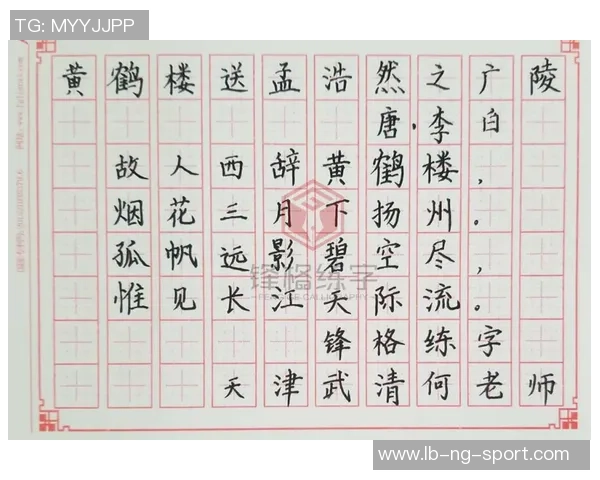 TG: MYYJJPP
黄鹤楼送孟浩然之广陵
唐·李白
故人西辞黄鹤楼，
烟花三月下扬州。
孤帆远影碧空尽，
惟见长江天际流。
锋格练字
天津武清何老师
锋格练字
www.lb-ng-sport.com